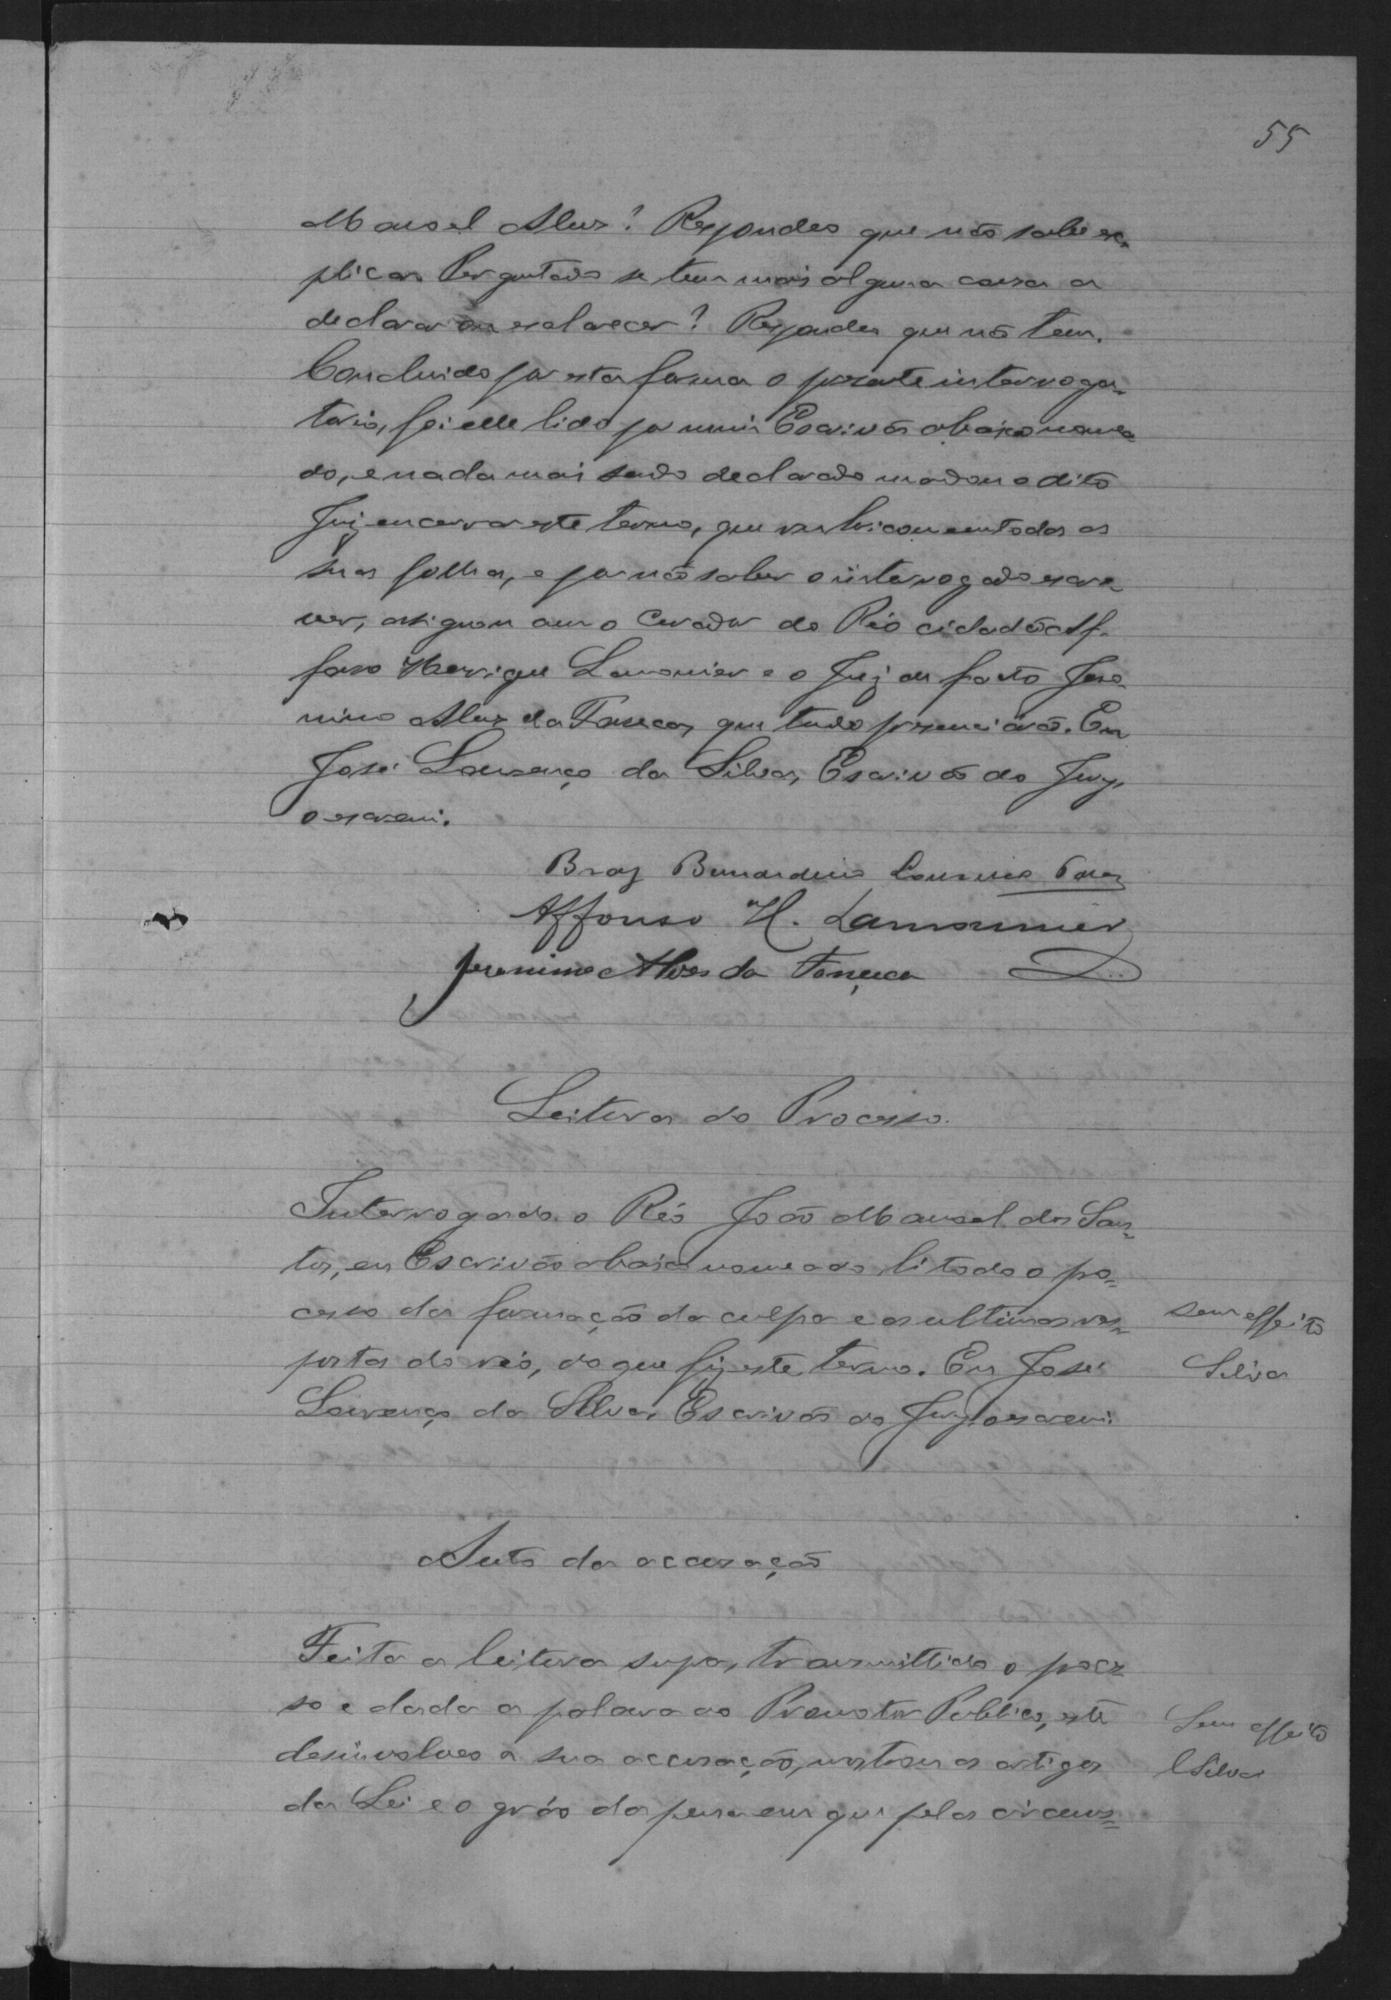 55
Manoel Alves? Respondeo que não sabe ex-
plicar. Perguntado se tem mais alguma cousa a
declarar ou esclarecer? Respondeu que não tem.
Concluido por esta forma o presente interroga-
torio, foi elle lido por mim Escrivão abaixo nomea
do, e nada mais sendo declarado mandou o dito
Juiz encerrar este termo, que rubricou em todas as
suas folhas, e por não saber o interrogado escre-
ver, assignou com o Curador do Réo cidadão Af-
fonso Henrique Lamounier e o Juiz de facto Jero-
nimo Alves da Fonseca, que tudo presenciárão. Eu
José Lourenço da Silva, Escrivão do Jury,
o escrevi.
Braz Bernardino Loureiro
Affonso H. Lamounier
Jeronimo Alves da Fonseca
Leitura do Processo.
Interrogado o Réo João Manoel dos San-
tos, eu Escrivão abaixo nomeado li todo o pro-
cesso da formação da culpa e as ultimas res-
postas do réo, do que fiz este termo. Eu José
Lourenço da Silva, Escrivão do Jury, o escrevi.
Sem effeito
Silva
Auto da accusação
Feita a leitura supra, transmittido o proces
so e dada a palavra ao Promotor Publico, este
desinvolveo a sua accusação, mostrou os artigos
da Lei e o gráo da pena em que pelas circuns-
Sem effeito
Silva